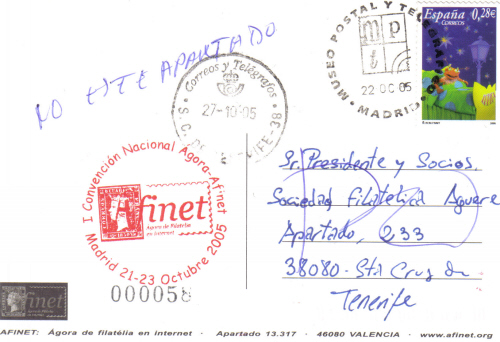 NO EITE APARTADO
España 0,28€
CORREOS
MUSEO POSTAL Y TELEGRAFICO
m p
t
22 OC 05
· MADRID ·
· Correos y Telégrafos ·
27-10-05
S.C. TENERIFE-38
I Convención Nacional Agora-Afinet
Afinet
Agora de Filatelia
en Internet
Madrid 21-23 Octubre 2005
000058
Sr. Presidente y Socios,
Sociedad Filatélica Aguere
Apartado, 233
38080- Sta Cruz de
Tenerife
afinet
AFINET: Ágora de filatélia en internet · Apartado 13.317 · 46080 VALENCIA · www.afinet.org